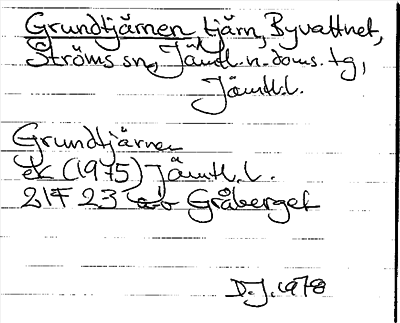 Grundtjärnen tjärn, Byvattnet,
Ströms sn, Jämtl. n. doms. tg,
Jämtl.l.
Grundtjärnen
ek (1975) Jämtl.l.
21F 23 Gråberget
D.J. 1978